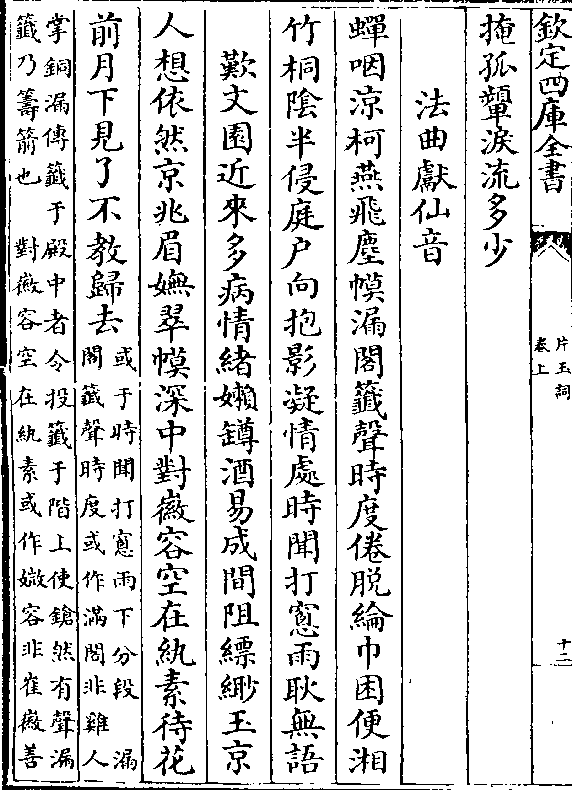 欽定四庫全書
片玉詞
卷上
十二
掩孤顰淚流多少
法曲獻仙音
蟬咽涼柯燕飛塵幙漏閣籤聲時度倦脫綸巾困便湘
竹桐陰半侵庭户向抱影凝情處時聞打窻雨耿無語
歎文園近來多病情緒嬾罇酒易成間阻縹緲玉京
人想依然京兆眉嫵翠幙深中對徽容空在紈素待花
前月下見了不教歸去
或于時聞打窻雨下分段 漏
閣籤聲時度或作滿閣非雞人
掌銅漏傳籤于殿中者令投籤于階上使鎗然有聲漏
籤乃籌箭也 對徽容空在紈素或作媺容非崔徽善